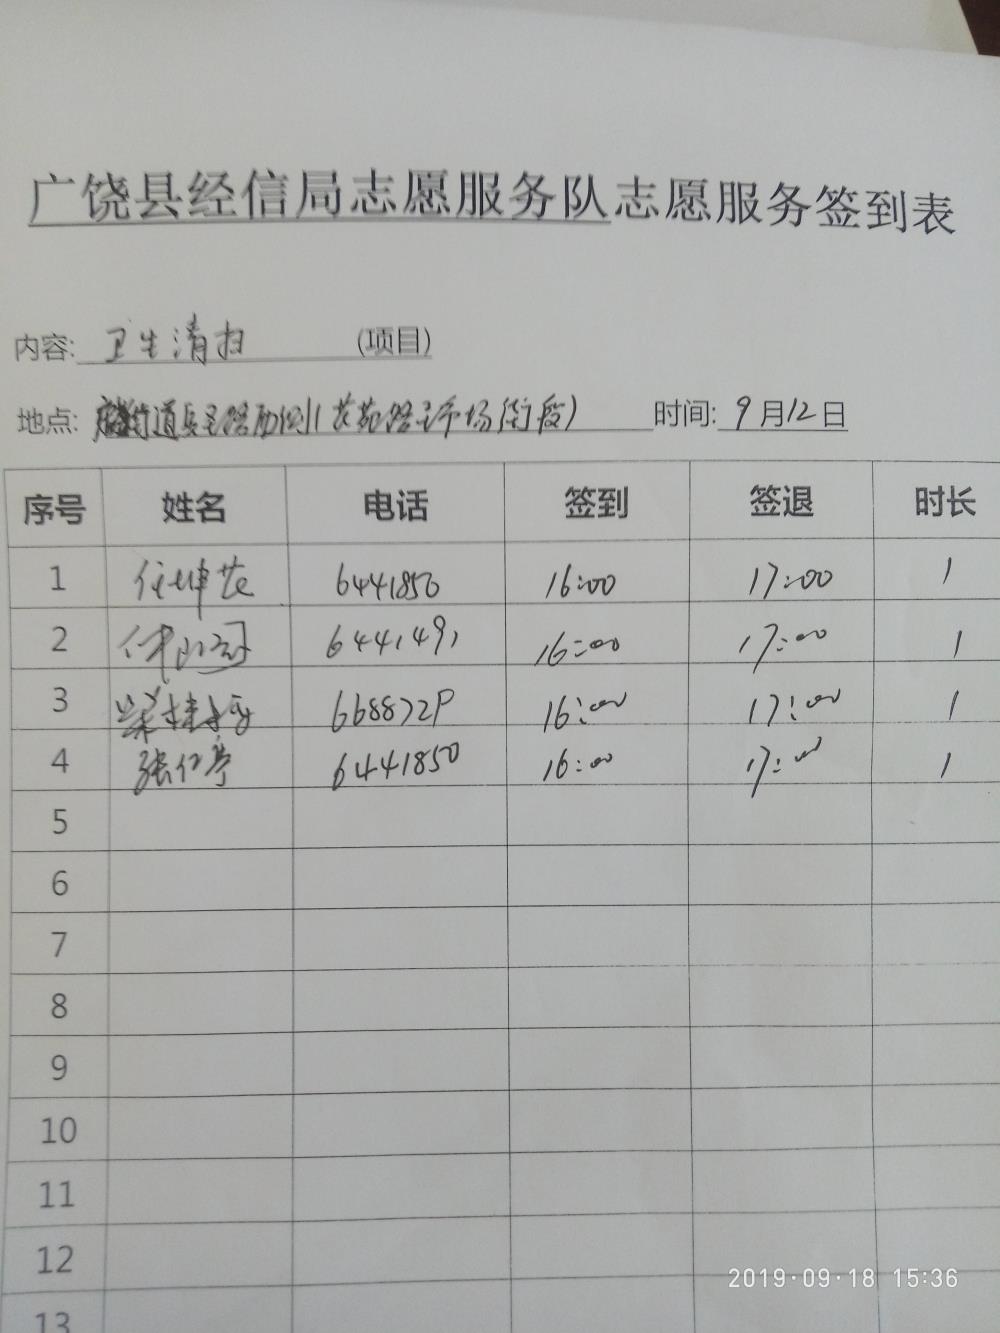 广饶县经信局志愿服务队志愿服务签到表
内容: 卫生清扫 (项目)
地点: 街道 路西侧(花苑路至市场街段) 时间: 9月12日
序号 姓名 电话 签到 签退 时长
1 任坤花 6441850 16:00 17:00 1
2 6441491 16:00 17:00 1
3 6688729 16:00 17:00 1
4 张仁亭 6441850 16:00 17:00 1
5
6
7
8
9
10
11
12
13
2019·09·18 15:36